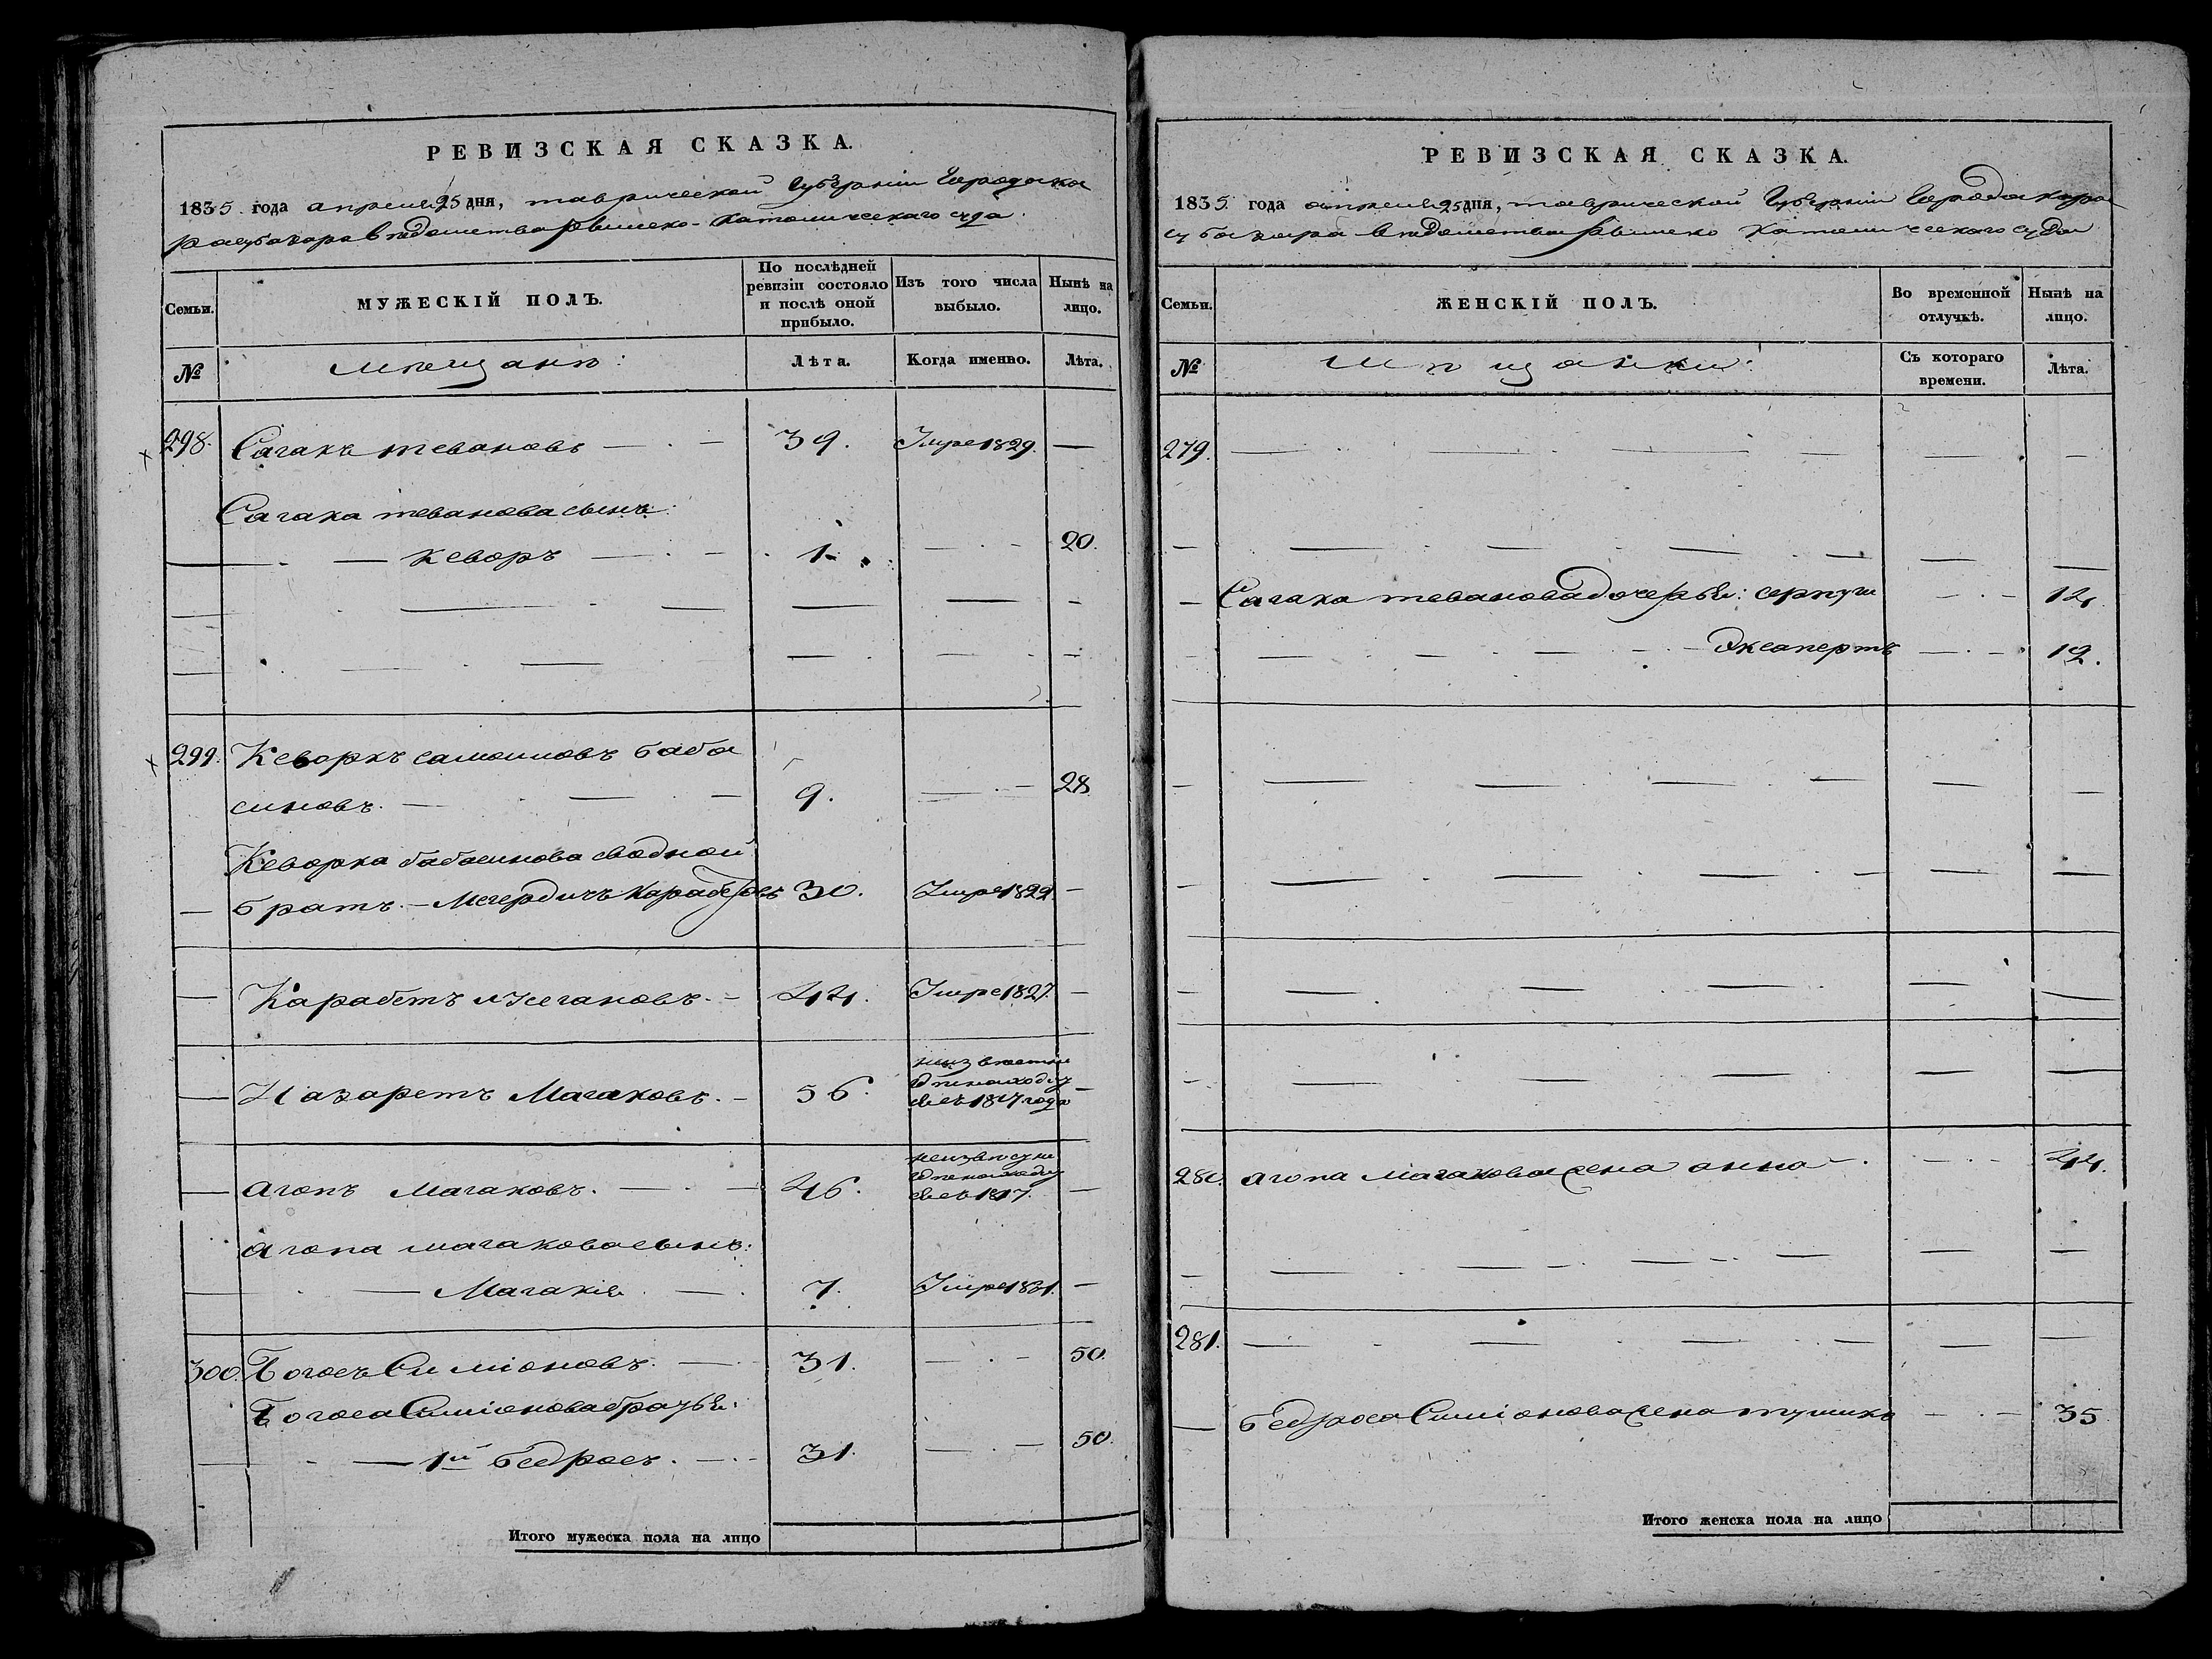 РЕВИЗСКАЯ СКАЗКА.
1835 года апреля 25 дня, таврической Губернии Города ка
расубазара вѣдомства Римско-католическаго суда.
Семьи.
МУЖЕСКІЙ ПОЛЪ.
По послѣдней ревизіи состояло и послѣ оной прибыло.
Изъ того числа выбыло.
Нынѣ на лицо.
№
мѣщанѣ:
Лѣта.
Когда именно.
Лѣта.
298. Сагакъ тевановъ — 39. Умре 1829. —
Сагака теванова сынъ:
— Кеворъ — 1. — 20.
299. Кеворкъ самоиловъ баба
синовъ. — 9. — 28
Кеворка бабасинова сводной
— братъ. — Мегердичъ Карабетовъ 30. Умре 1822. —
— Карабетъ Ижегановъ. — 44. Умре 1827. —
— Назаретъ Магаковъ. — 56. неизвѣстно гдѣ находит
ся съ 1817 года —
— агопъ Магаковъ. — 46. гдѣ находит
ся съ 1817. —
агопа магакова сынъ:
— Магакія — 7. Умре 1831. —
300. Богосъ Симіоновъ. — 31. — 50.
Богоса Симіонова братья:
— 1й бедросъ. — 31. — 50.
Итого мужеска пола на лицо
РЕВИЗСКАЯ СКАЗКА.
1835 года апреля 25 дня, таврической Губерніи Города кара
субазара вѣдомства Римско католическаго суда
Семьи.
ЖЕНСКІЙ ПОЛЪ.
Во временной отлучкѣ.
Нынѣ на лицо.
№
мѣщанки:
Съ котораго времени.
Лѣта.
279. — — —
— Сагака теванова дочерья: серпуги — 14.
— Эксаперть — 12.
280. агопа магакова жена анна — 44.
281. — — —
— бедроса Симіонова жена — 35
Итого женска пола на лицо